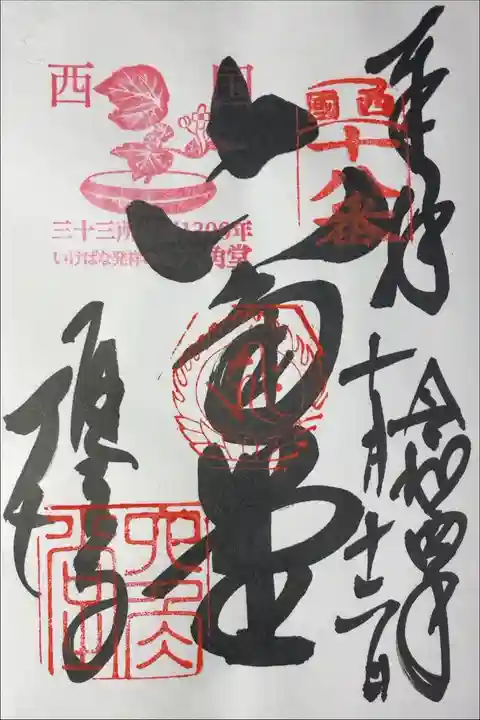 奉拝
令和四年
十月十二日
西國
十八番
六角堂
西国
三十三所草創1300年
いけばな発祥の地 六角堂
頂法寺